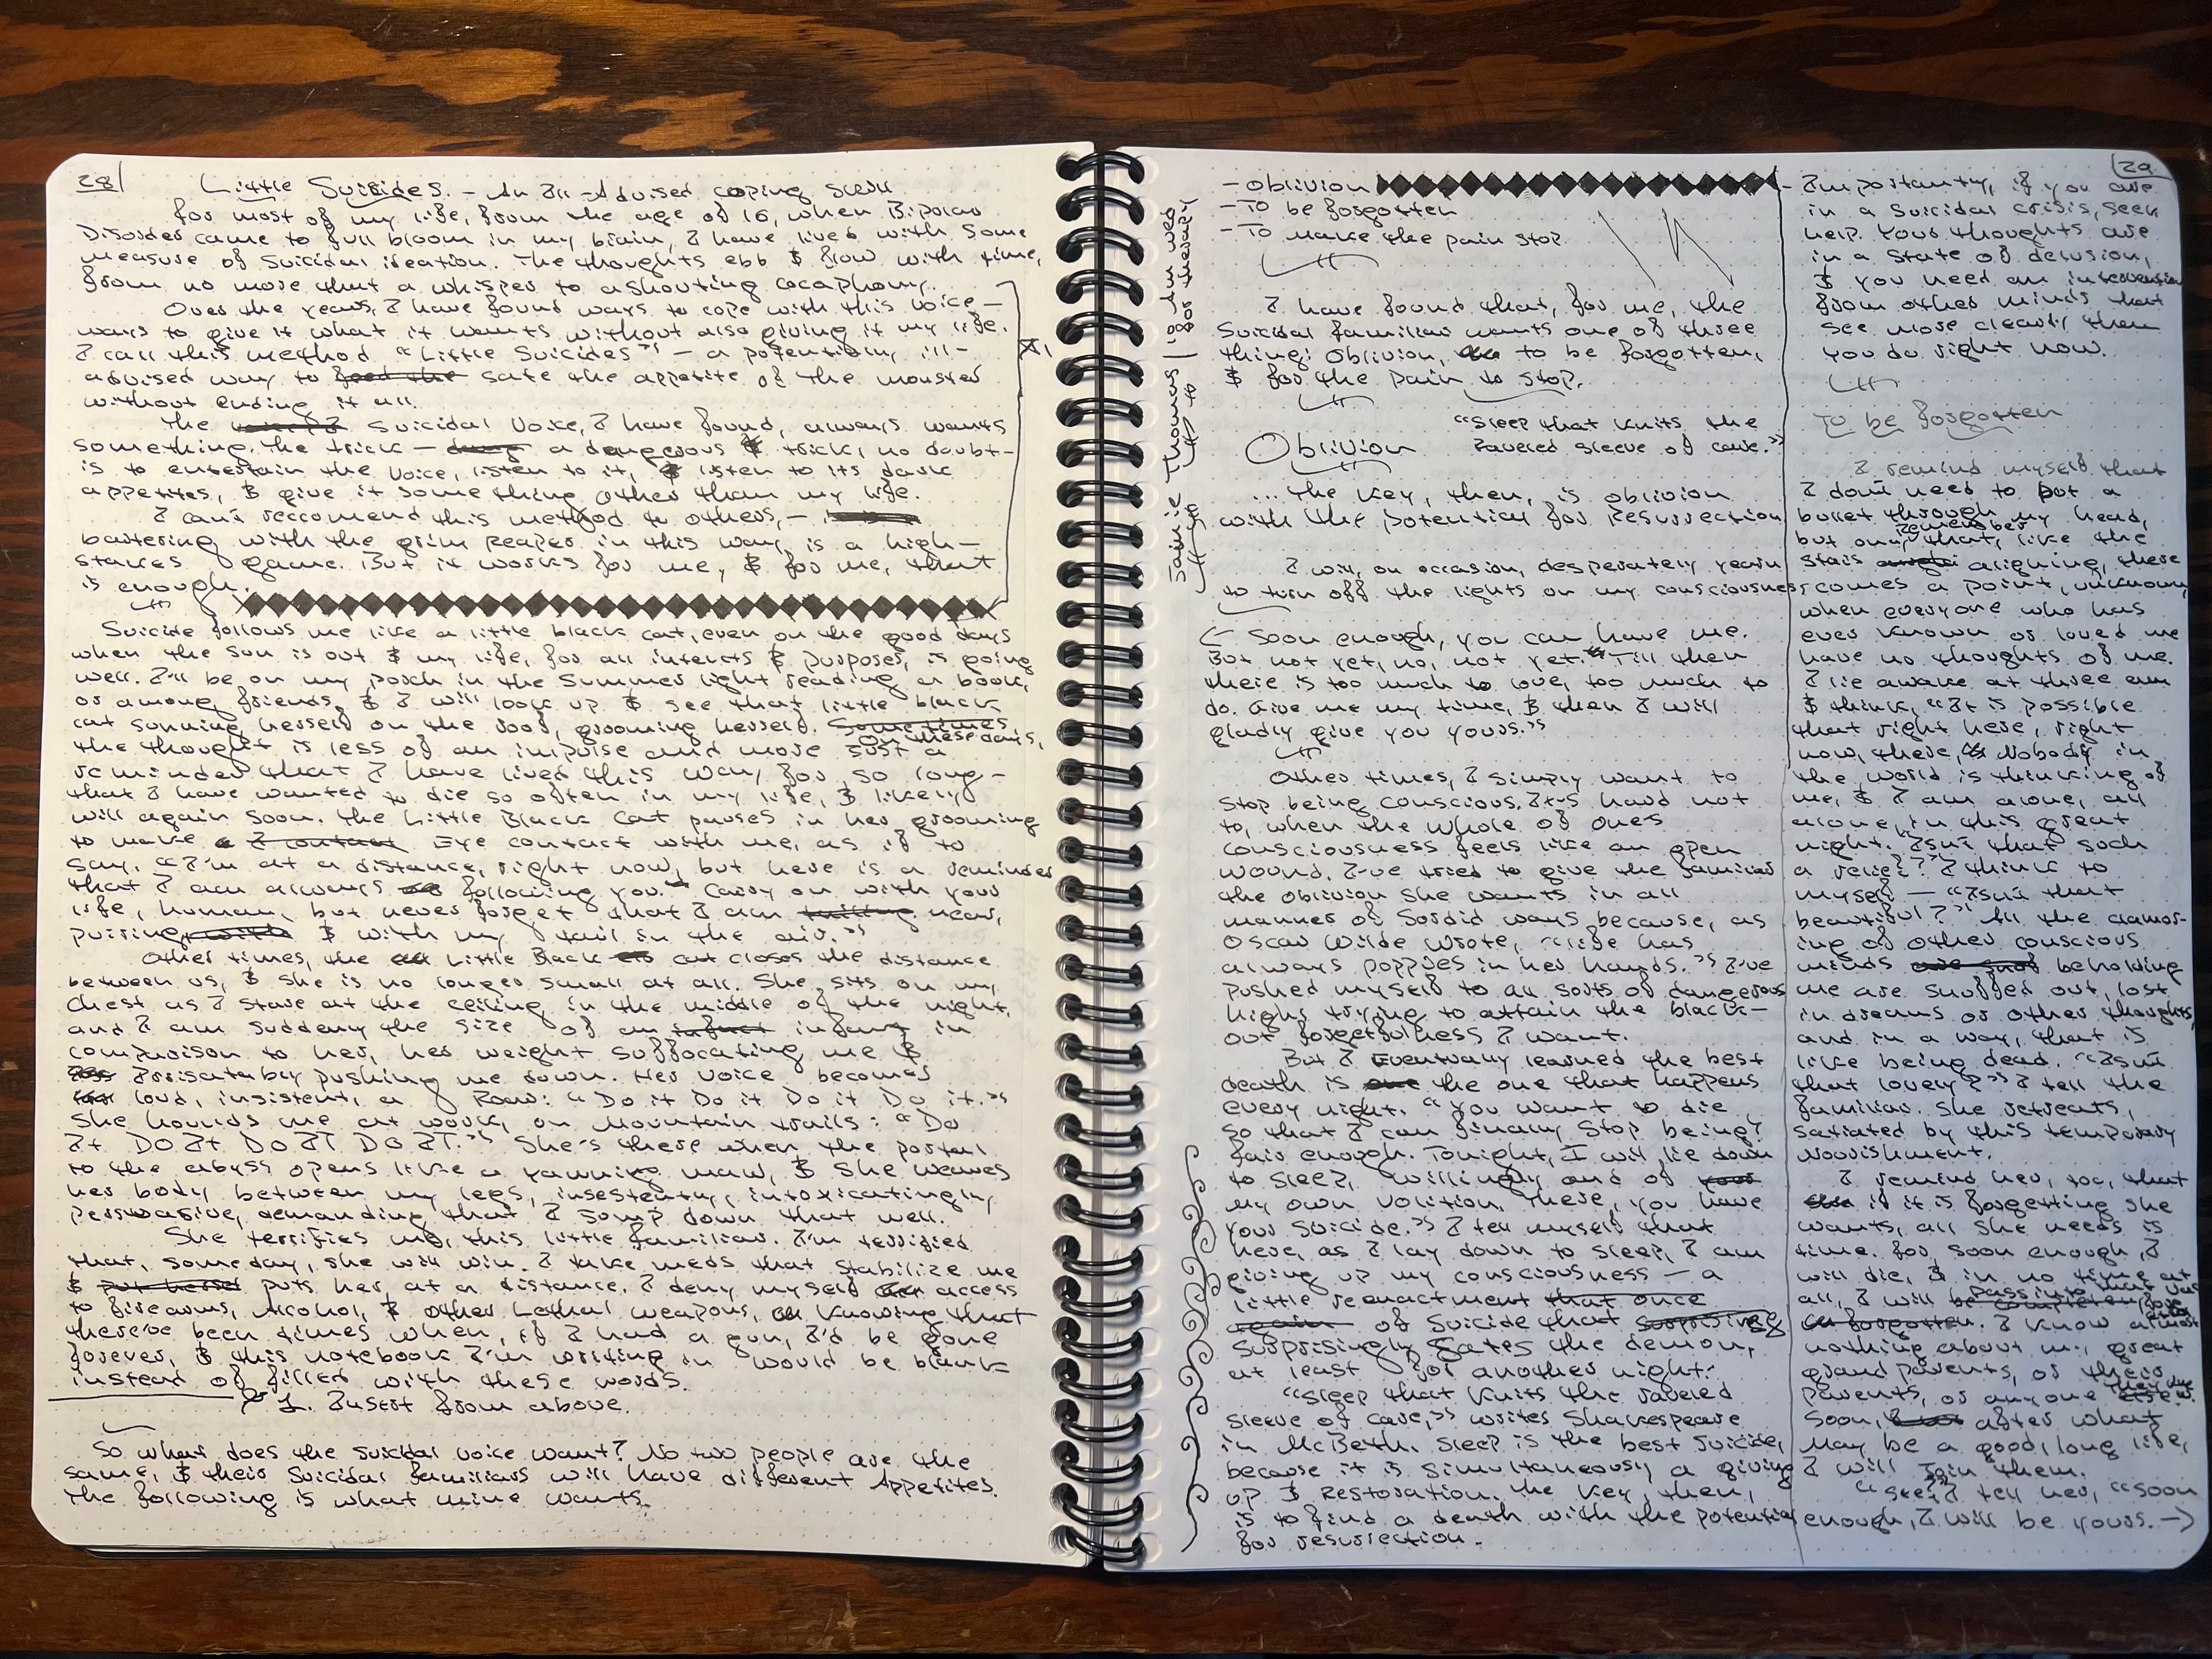 28
Little Suicides. - An Ill-Advised coping skill
for most of my life, from the age of 16, when Bipolar
Disorder came to full bloom in my brain, I have lived with some
measure of suicidal ideation. The thoughts ebb & flow with time,
from no more that a whisper to a shouting cacaphony.
Over the years, I have found ways to cope with this voice —
ways to give it what it wants without also giving it my life.
I call this method "Little Suicides" — a potentially ill-
advised way to feed the sate the appetite of the monster
without ending it all.
The suicidal voice, I have found, always wants
something. The trick — a dangerous trick, no doubt —
is to entertain the voice, listen to it, listen to its dark
appetites, & give it something other than my life.
I can't reccomend this method to others, —
bartering with the grim reaper in this way is a high-
stakes game. But it works for me, & for me, that
is enough.
Suicide follows me like a little black cat, even on the good days
when the sun is out & my life, for all intents & purposes, is going
well. I'll be on my porch in the summer light reading a book,
or among friends, & I will look up & see that little black
cat sunning herself on the roof, grooming herself. Sometimes
On these days,
the thought is less of an impulse and more just a
reminder that I have lived this way for so long -
that I have wanted to die so often in my life, & likely
will again soon. The Little Black Cat pauses in her grooming
to make a I contact Eye contact with me, as if to
say, "I'm at a distance, right now, but here is a reminder
that I am always following you." Carry on with your
life, human, but never forget that I am near,
purring with & with my tail in the air."
Other times, the Little Black cat closes the distance
between us, & she is no longer small at all. She sits on my
chest as I stare at the ceiling in the middle of the night,
and I am suddenly the size of an infant in
comparison to her, her weight suffocating me &
pushing me down. Her voice becomes
loud, insistent, a Roar: "Do it Do it Do it Do it."
She hounds me at work, on mountain trails: "Do
It DO It DO IT DO IT." She's there when the portal
to the abyss opens like a yawning maw, & she weaves
her body between my legs, insestently, intoxicatingly
perswasive, demanding that I jump down that well.
She terrifies me, this little familiar. I'm terrified
that, someday, she will win. I take meds that stabilize me
& put herself puts her at a distance. I deny myself access
to firearms, Alcohol, & other Lethal weapons, knowing that
there've been times when, if I had a gun, I'd be gone
forever, & this notebook I'm writing in would be blank
instead of filled with these words.
1. Insert from above.
So what does the suicidal voice want? No two people are the
same, & their suicidal familiars will have different Appetites.
The following is what mine wants.
29
- Oblivion
- To be forgotten
- To make the pain stop.
I have found that, for me, the
suicidal familiar wants one of three
thing: Oblivion, to be forgotten,
& for the pain to stop.
Oblivion
"Sleep that knits the
Ravered sleeve of care."
... The key, then, is oblivion
with the potential for Resurrection
I will, on occasion, desperately yearn
to turn off the lights on my consciousness.
Soon enough, you can have me.
But not yet, no, not yet. Till then
there is too much to love, too much to
do. Give me my time, & then I will
gladly give you yours."
Other times, I simply want to
stop being conscious. It's hard not
to, when the whole of ones
consciousness feels like an open
wound. I've tried to give the familiar
the oblivion she wants in all
manner of sordid ways because, as
Oscar Wilde wrote, "life has
always poppies in her hands." I've
pushed myself to all sorts of dangerous
highs trying to attain the black-
out forgetfulness I want.
But I Eventually learned the best
death is the one that happens
every night. "You want to die
so that I can finally stop being?
Fair enough. Tonight, I will lie down
to sleep, willingly and of your
my own volition. There, you have
your suicide." I tell myself that
here, as I lay down to sleep, I am
giving up my consciousness — a
little reenactment that once
again of suicide that
surprisingly sates the demon,
at least for another night.
"Sleep that knits the ravered
sleeve of care," writes Shakespeare
in McBeth. Sleep is the best suicide,
because it is simultaneously a giving
up & Restoration. The key, then,
is to find a death with the potential
for resurrection.
Importantly, if you are
in a suicidal crisis, seek
help. Your thoughts are
in a state of delusion,
& you need an intervention
from other minds that
see more clearly then
you do right now.
To be forgotten
I remind myself that
I don't need to put a
bullet through my head,
but only remember that, like the
stars aligning, there
comes a point, unknown,
when everyone who has
ever known or loved me
have no thoughts of me.
I lie awake at three am
& think, "It is possible
that right here, right
now, there, is Nobody in
the world is thinking of
me, & I am alone, all
alone, in this great
night. "Isn't that such
a relief?" I think to
myself — "Isn't that
beautiful?" All the clamor-
ing of other conscious
minds are not beholding
me are snuffed out, lost
in dreams or other thoughts,
and in a way, that is
like being dead. "Isn't
that lovely?" I tell the
familiar. She retreats,
satiated by this temporary
nourishment.
I remind her, too, that
if it is forgetting she
wants, all she needs is
time. for soon enough, I
will die, & in no time at
all, I will be completely
forgotten. I know almost
nothing about my great
grandparents, or their
parents, or anyone else
Soon, after what
may be a good, long life,
I will Join them.
"See?" I tell her, "soon
enough, I will be yours. →